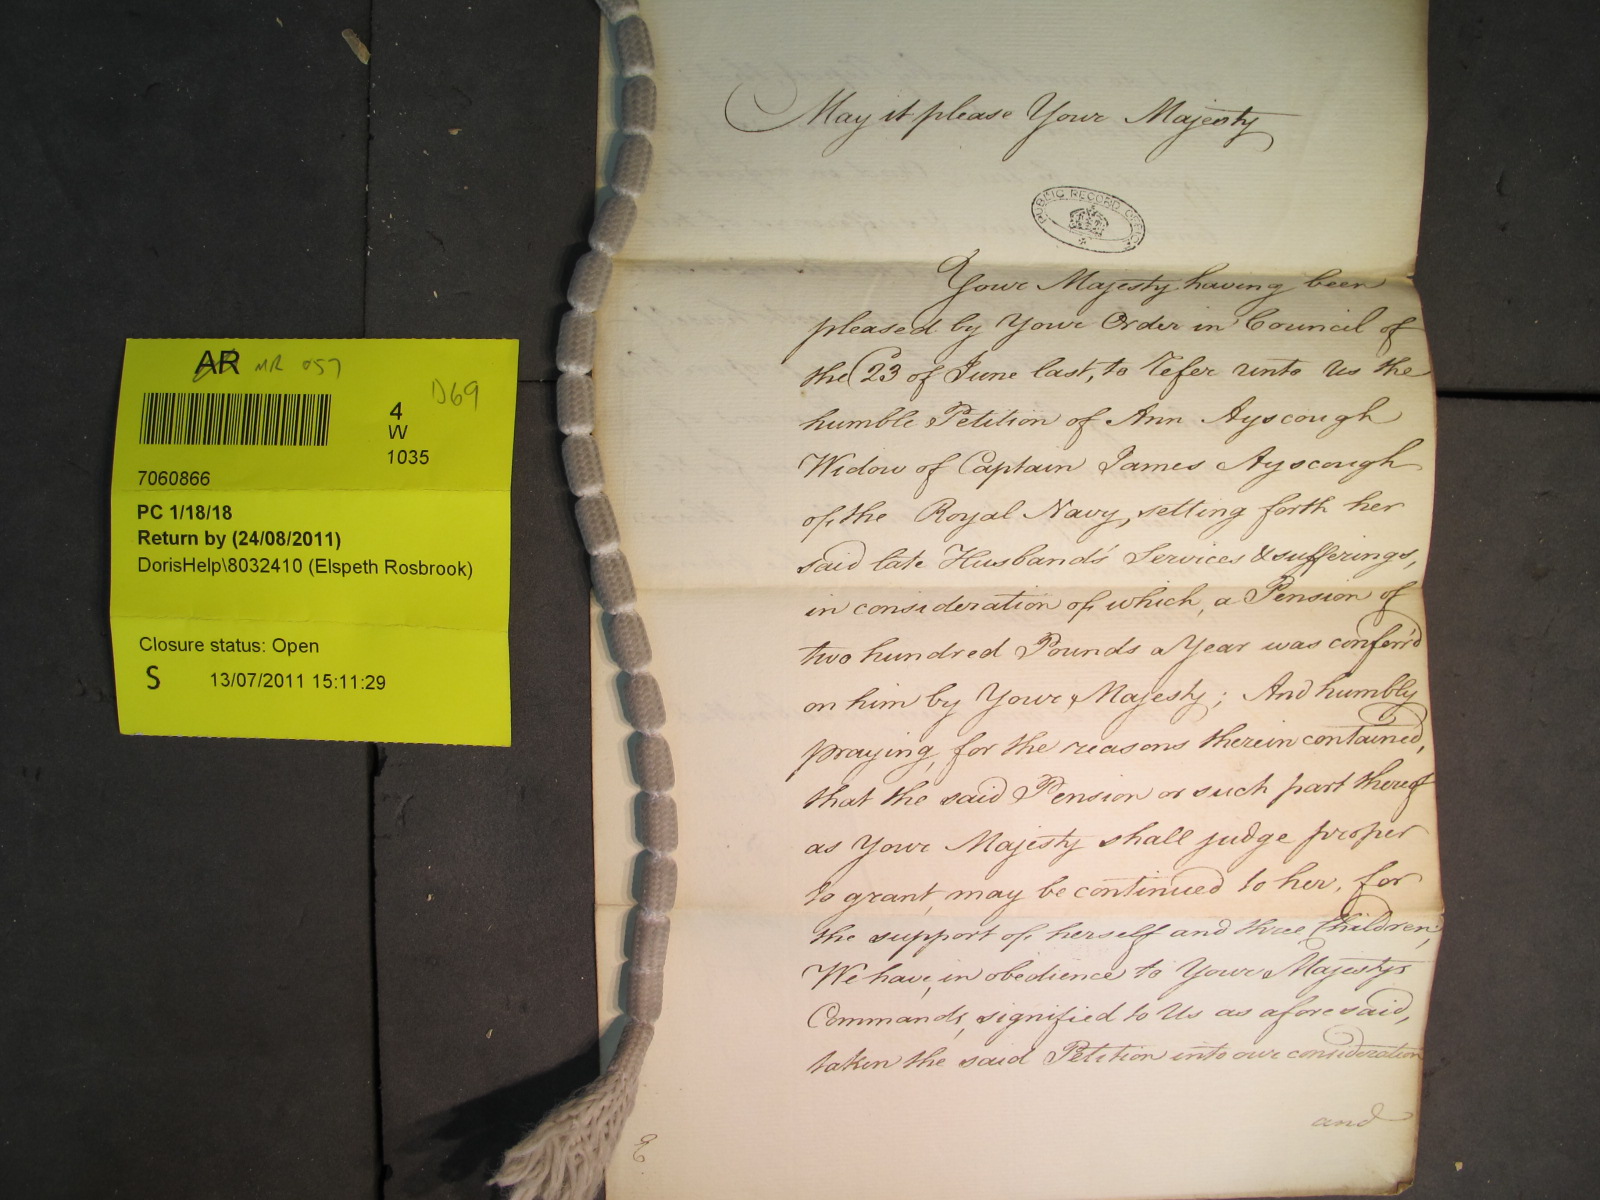 AR MR 057
D69
4
W
1035
7060866
PC 1/18/18
Return by (24/08/2011)
DorisHelp\8032410 (Elspeth Rosbrook)
Closure status: Open
S 13/07/2011 15:11:29
May it please Your Majesty
PUBLIC RECORD OFFICE
Your Majesty having been
pleased by Your Order in Council of
the 23 of June last, to Refer unto Us the
humble Petition of Ann Ayscough
Widow of Captain James Ayscough
of the Royal Navy, setting forth her
said late Husband's Services & sufferings,
in consideration of which, a Pension of
two hundred Pounds a Year was conferr'd
on him by Your Majesty; And humbly
praying, for the reasons therein contained,
that the said Pension or such part thereof
as Your Majesty shall judge proper
to grant, may be continued to her, for
the support of herself and three Children,
We have, in obedience to Your Majestys
Commands, signified to Us as aforesaid,
taken the said Petition into our consideration
and